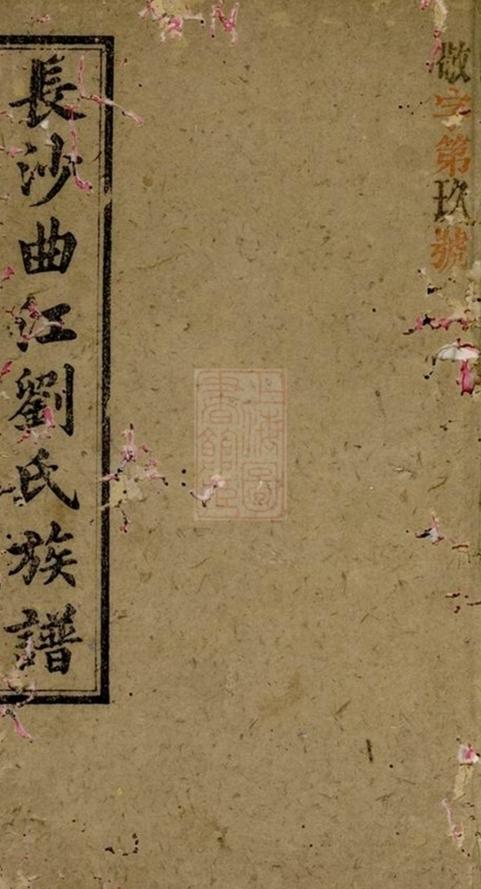 敬字第玖號
上海圖
書館藏
長沙曲紅劉氏族譜